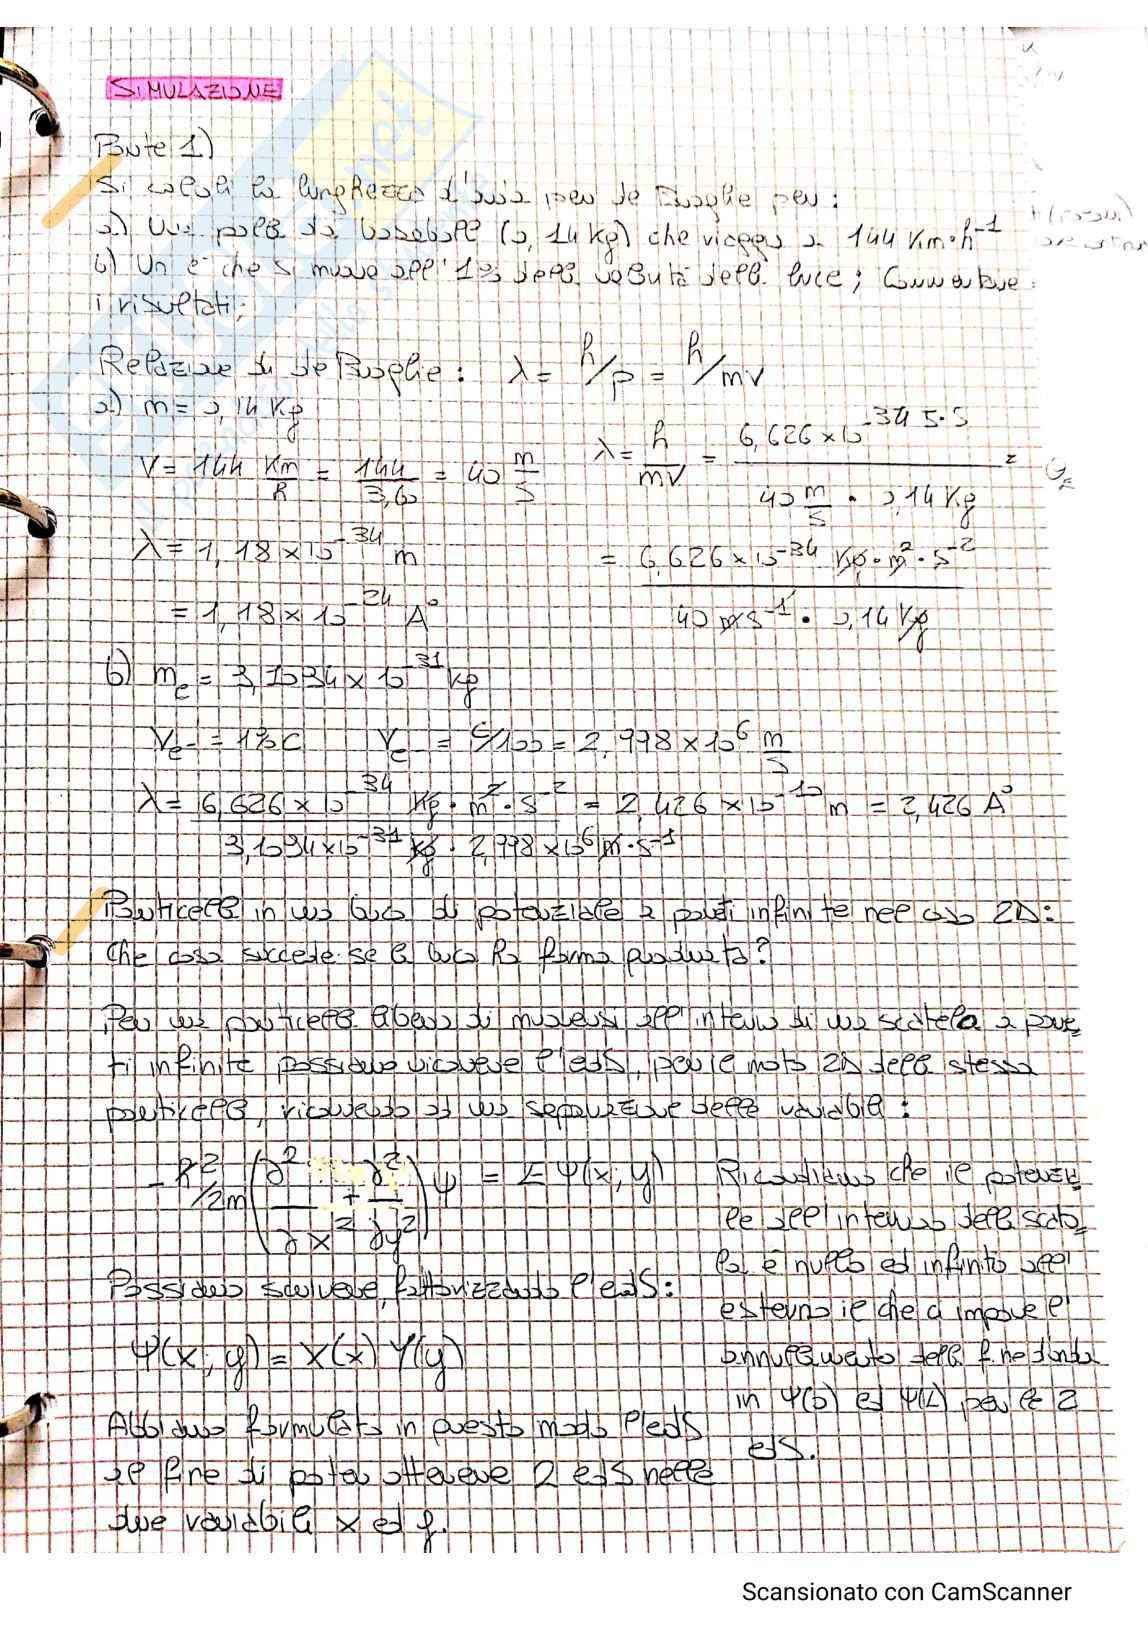 SIMULAZIONE
Parte 1)
Si calcoli la lunghezza d'onda per de Broglie per:
a) Una palla da baseball (0,14 Kg) che viaggia a 144 Km•h⁻¹
b) Un e⁻ che si muove all'1% della velocità della luce; Commentare
i risultati;
Relazione di de Broglie: λ = h/p = h/mv
a) m = 0,14 Kg
V = 144 Km/h = 144/3,60 = 40 m/s
λ = h/mv = 6,626 x 10⁻³⁴ J•s / 40 m/s • 0,14 Kg =
λ = 1,18 x 10⁻³⁴ m
= 6,626 x 10⁻³⁴ Kg • m² • s⁻² / 40 m s⁻¹ • 0,14 Kg
= 1,18 x 10⁻²⁴ A°
b) me = 3,1034 x 10⁻³¹ kg
Ve- = 1% C Ve- = C/100 = 2,998 x 10⁶ m/s
λ = 6,626 x 10⁻³⁴ Kg • m² • s⁻² / 3,1034 x 10⁻³¹ kg • 2,998 x 10⁶ m • s⁻¹ = 2,426 x 10⁻¹⁰ m = 2,426 A°
Particella in una buca di potenziale a pareti infinite nel caso 2D:
Che cosa succede se la buca ha forma quadrata?
Per una particella libera di muoversi all'interno di una scatola a pare
ti infinite possiamo ricavare l'edS, per il moto 2D della stessa
particella, ricorrendo ad una separazione delle variabili:
- ħ²/2m (∂²/∂x² + ∂²/∂y²) ψ = E ψ(x; y)
Ricordiamo che il potenzia
le all'interno della scato
la è nullo ed infinito all'
esterno il che ci impone l'
annullamento della f.ne d'onda
in ψ(0) ed ψ(L) per le 2
edS.
Possiamo scrivere, fattorizzando l'edS:
ψ(x; y) = X(x) Y(y)
Abbiamo formulato in questo modo l'edS
al fine di poter ottenere 2 edS nelle
due variabili x ed y.
Scansionato con CamScanner